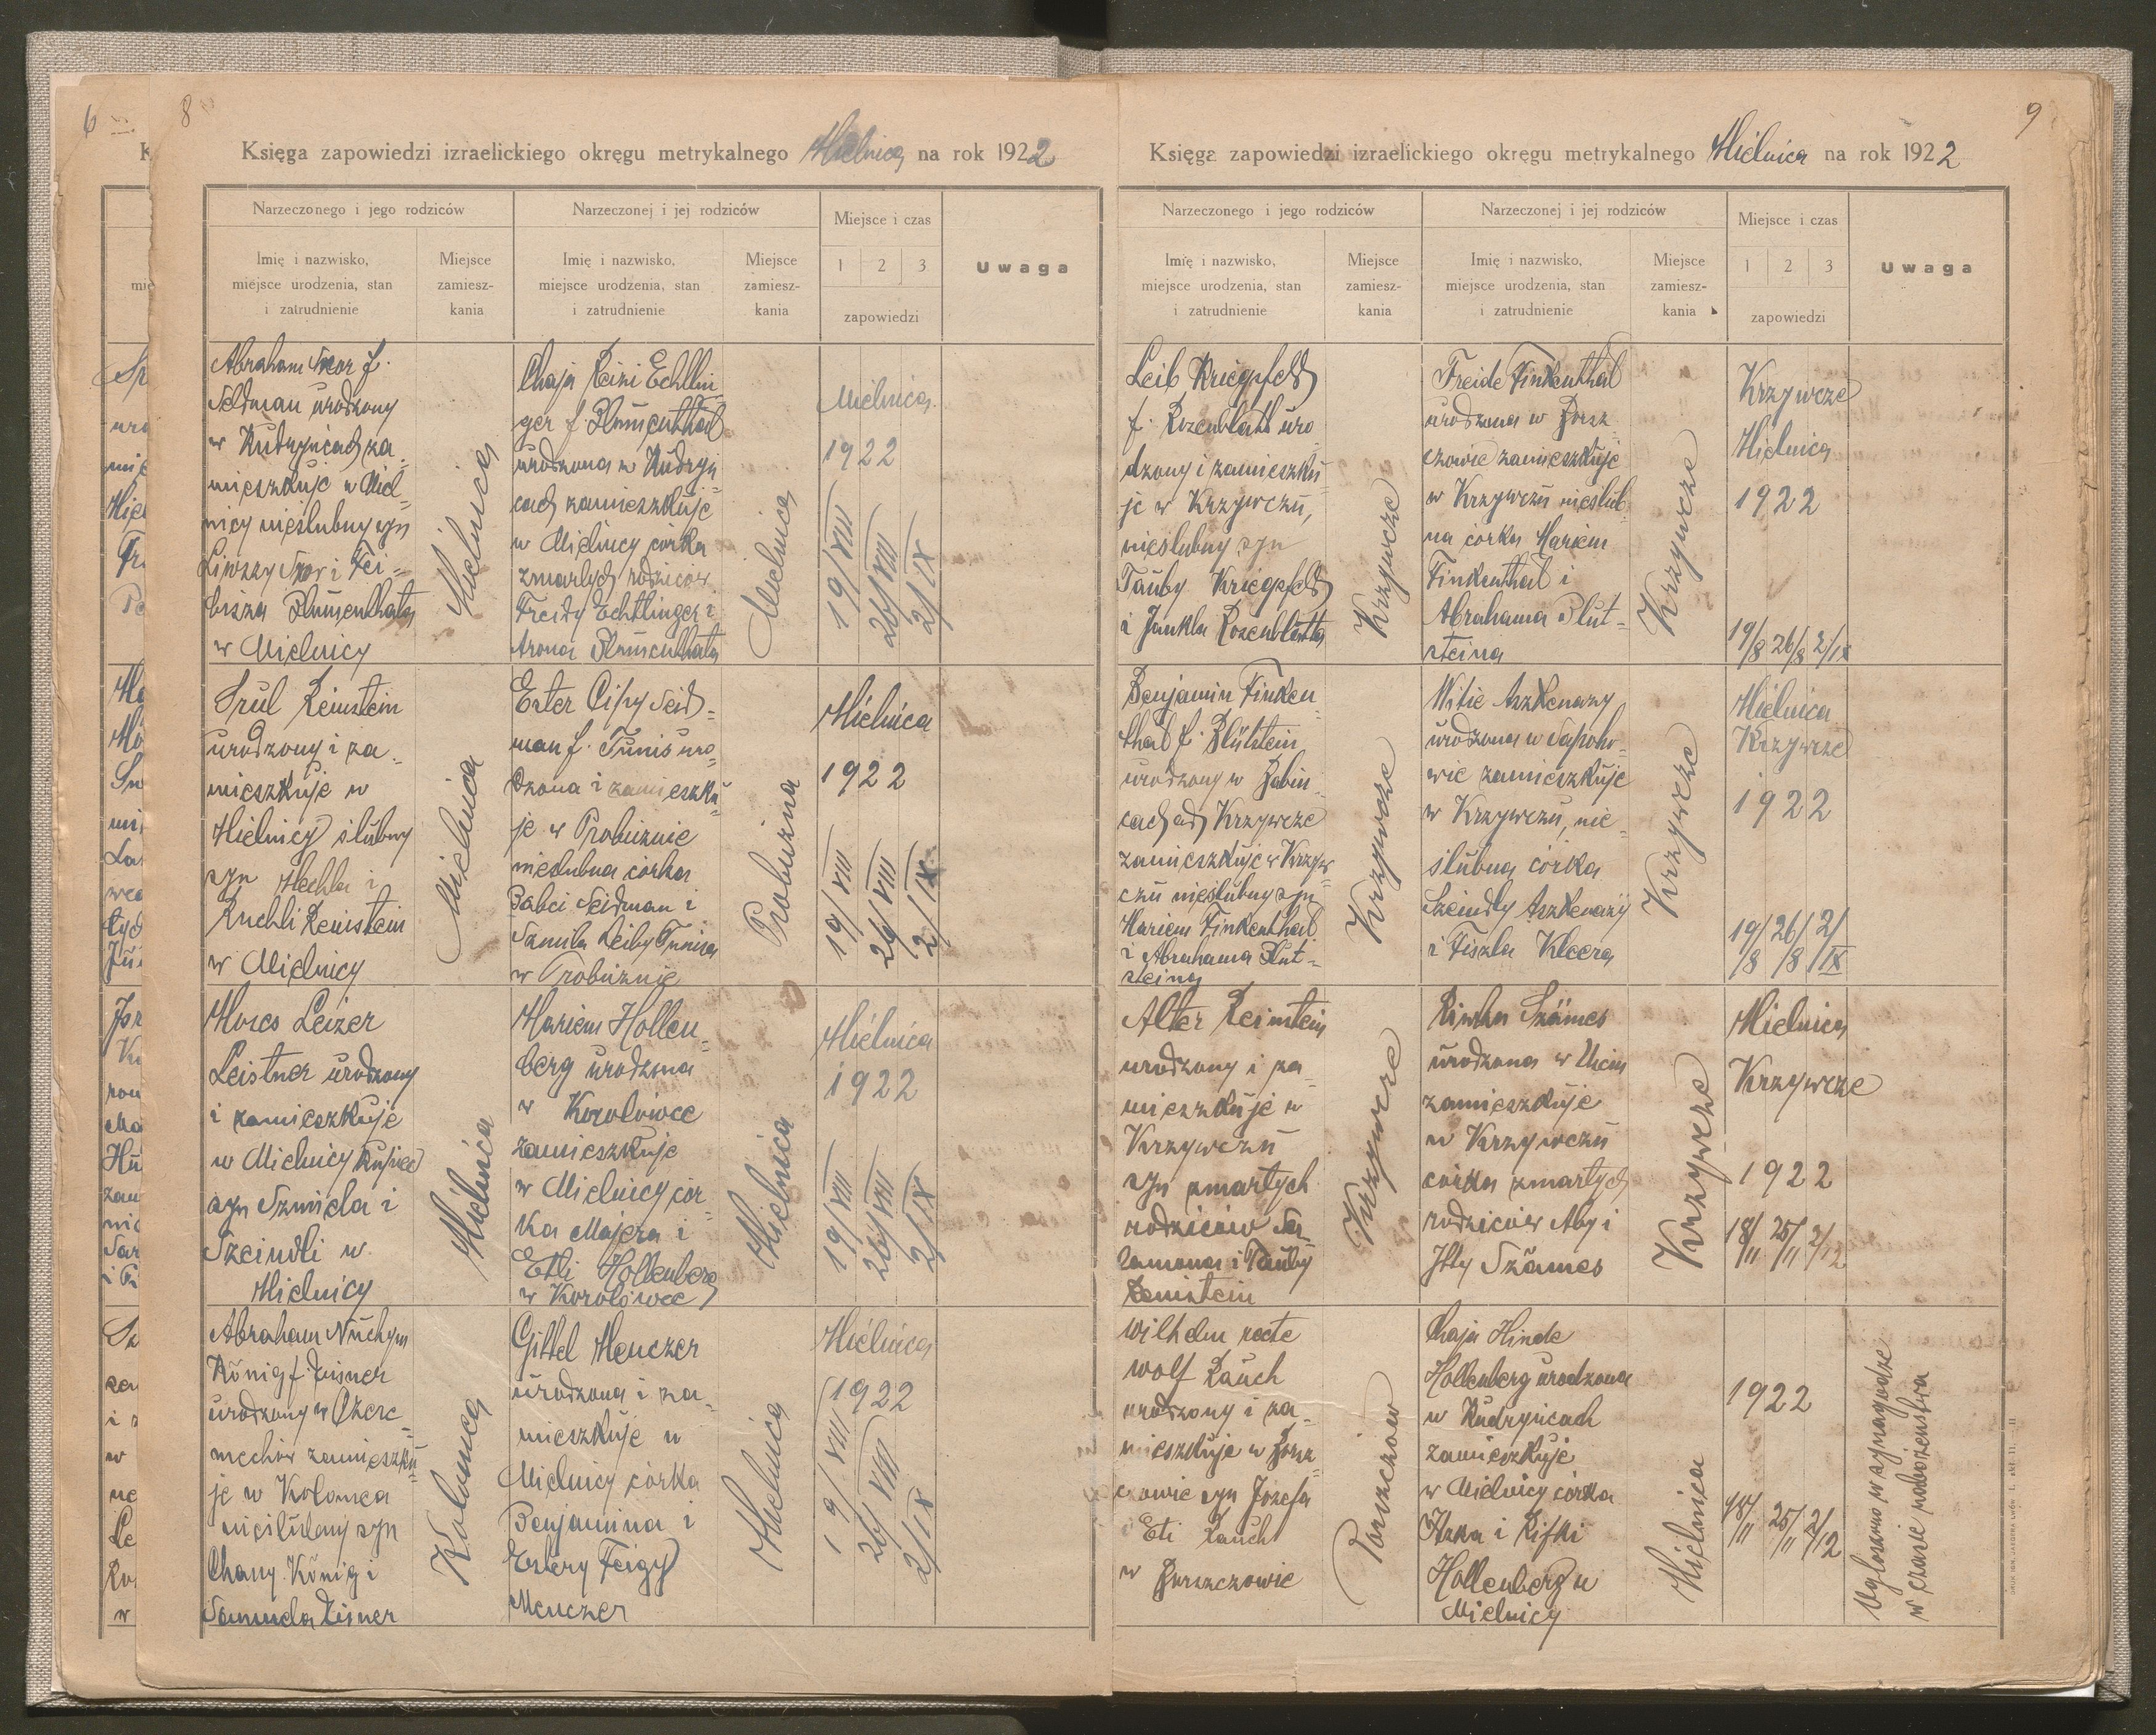 6
8
Księga zapowiedzi izraelickiego okręgu metrykalnego Mielnica na rok 1922
Narzeczonego i jego rodziców
Narzeczonej i jej rodziców
Miejsce i czas
Uwaga
Imię i nazwisko,
miejsce urodzenia, stan
i zatrudnienie
Miejsce
zamiesz-
kania
Imię i nazwisko,
miejsce urodzenia, stan
i zatrudnienie
Miejsce
zamiesz-
kania
1 2 3
zapowiedzi
Abraham f.
Seidman urodzony
w Kudryńcach za
mieszkuje w Miel=
nicy nieślubny syn
i Fei=
Blumenthala
w Mielnicy
Mielnica
Chaja Reizi Echtlin
ger f. Blumenthal
urodzona w Kudryń
cach zamieszkuje
w Mielnicy córka
zmarłych rodziców
Freidy Echtlinger i
Arona Blumenthala
Mielnica
Mielnica
1922
19/VIII
26/VIII
2/IX
Srul Reinstein
urodzony i za=
mieszkuje w
Mielnicy ślubny
syn Hechla i
Ruchli Reinstein
w Mielnicy
Mielnica
Ester Cipy Seid=
man f. Tunis uro
dzona i zamieszku=
je w Probużnie
nieślubna córka
Babci Seidman i
Samila Leiby Tunisa
w Probużnie
Probużna
Mielnica
1922
19/VIII
26/VIII
2/IX
Moses Leizer
Leistner urodzony
i zamieszkuje
w Mielnicy kupiec
syn Szmiela i
Szeindli w
Mielnicy
Mielnica
Mariem Hollen=
berg urodzona
w Korolówce
zamieszkuje
w Mielnicy cór=
ka Majera i
Etli Hollenberg
w Korolówce
Mielnica
Mielnica
1922
19/VIII
26/VIII
2/IX
Abraham Nuchym
König f. Zisner
urodzony w
zamieszku=
je w Kołomea
nieślubny syn
Chany König i
Samuela Zisner
Kołomea
Gittel Menczer
urodzona i za=
mieszkuje w
Mielnicy córka
Benjamina i
Estery Feigy
Menczer
Mielnica
Mielnica
1922
19/VIII
26/VIII
2/IX
9
Księga zapowiedzi izraelickiego okręgu metrykalnego Mielnica na rok 1922
Narzeczonego i jego rodziców
Narzeczonej i jej rodziców
Miejsce i czas
Uwaga
Imię i nazwisko,
miejsce urodzenia, stan
i zatrudnienie
Miejsce
zamiesz-
kania
Imię i nazwisko,
miejsce urodzenia, stan
i zatrudnienie
Miejsce
zamiesz-
kania
1 2 3
zapowiedzi
Leib Kriegpfeld
f. Rozenblatt uro
dzony i zamieszku=
je w Krzywczu,
nieślubny syn
Tauby Kriegpfeld
i Jankla Rozenblatta
Krzywcze
Freide Finkenthal
urodzona w Borsz
czowie zamieszkuje
w Krzywczu nieślub
na córka Mariem
Finkenthal i
Abrahama Blut=
steina
Krzywcze
Krzywcze
Mielnica
1922
19/8 26/8 2/IX
Benjamin Finken=
thal f. Blutstein
urodzony w Babin=
cach ad Krzywcze
zamieszkuje w Krzyw=
czu nieślubny syn
Mariem Finkenthal
i Abrahama Blut=
steina
Krzywcze
Witie Aszkenazy
urodzona w Sapoho=
wie zamieszkuje
w Krzywczu, nie=
ślubna córka
Szeindly Aszkenazy
i Fiszla Kleera
Krzywcze
Mielnica
Krzywcze
1922
19/8 26/8 2/IX
Alter Reinstein
urodzony i za=
mieszkuje w
Krzywczu
syn zmarłych
rodziców Sa=
lamona i Tauby
Reinstein
Krzywcze
Riwka Szames
urodzona w Uciu
zamieszkuje
w Krzywczu
córka zmarłych
rodziców Aby i
Itty Szames
Krzywcze
Mielnica
Krzywcze
1922
18/11 25/11 2/12
Wilhelm recte
Wolf Rauch
urodzony i za=
mieszkuje w Borsz=
czowie syn Jozefa
i Eti Rauch
w Borszczowie
Borszczów
Chaja Hinde
Hollenberg urodzona
w Kudryńcach
zamieszkuje
w Mielnicy córka
Itzka i Rifki
Hollenberg w
Mielnicy
Mielnica
1922
18/11 25/11 2/12
Ogłoszono w synagodze
w czasie nabożeństwa